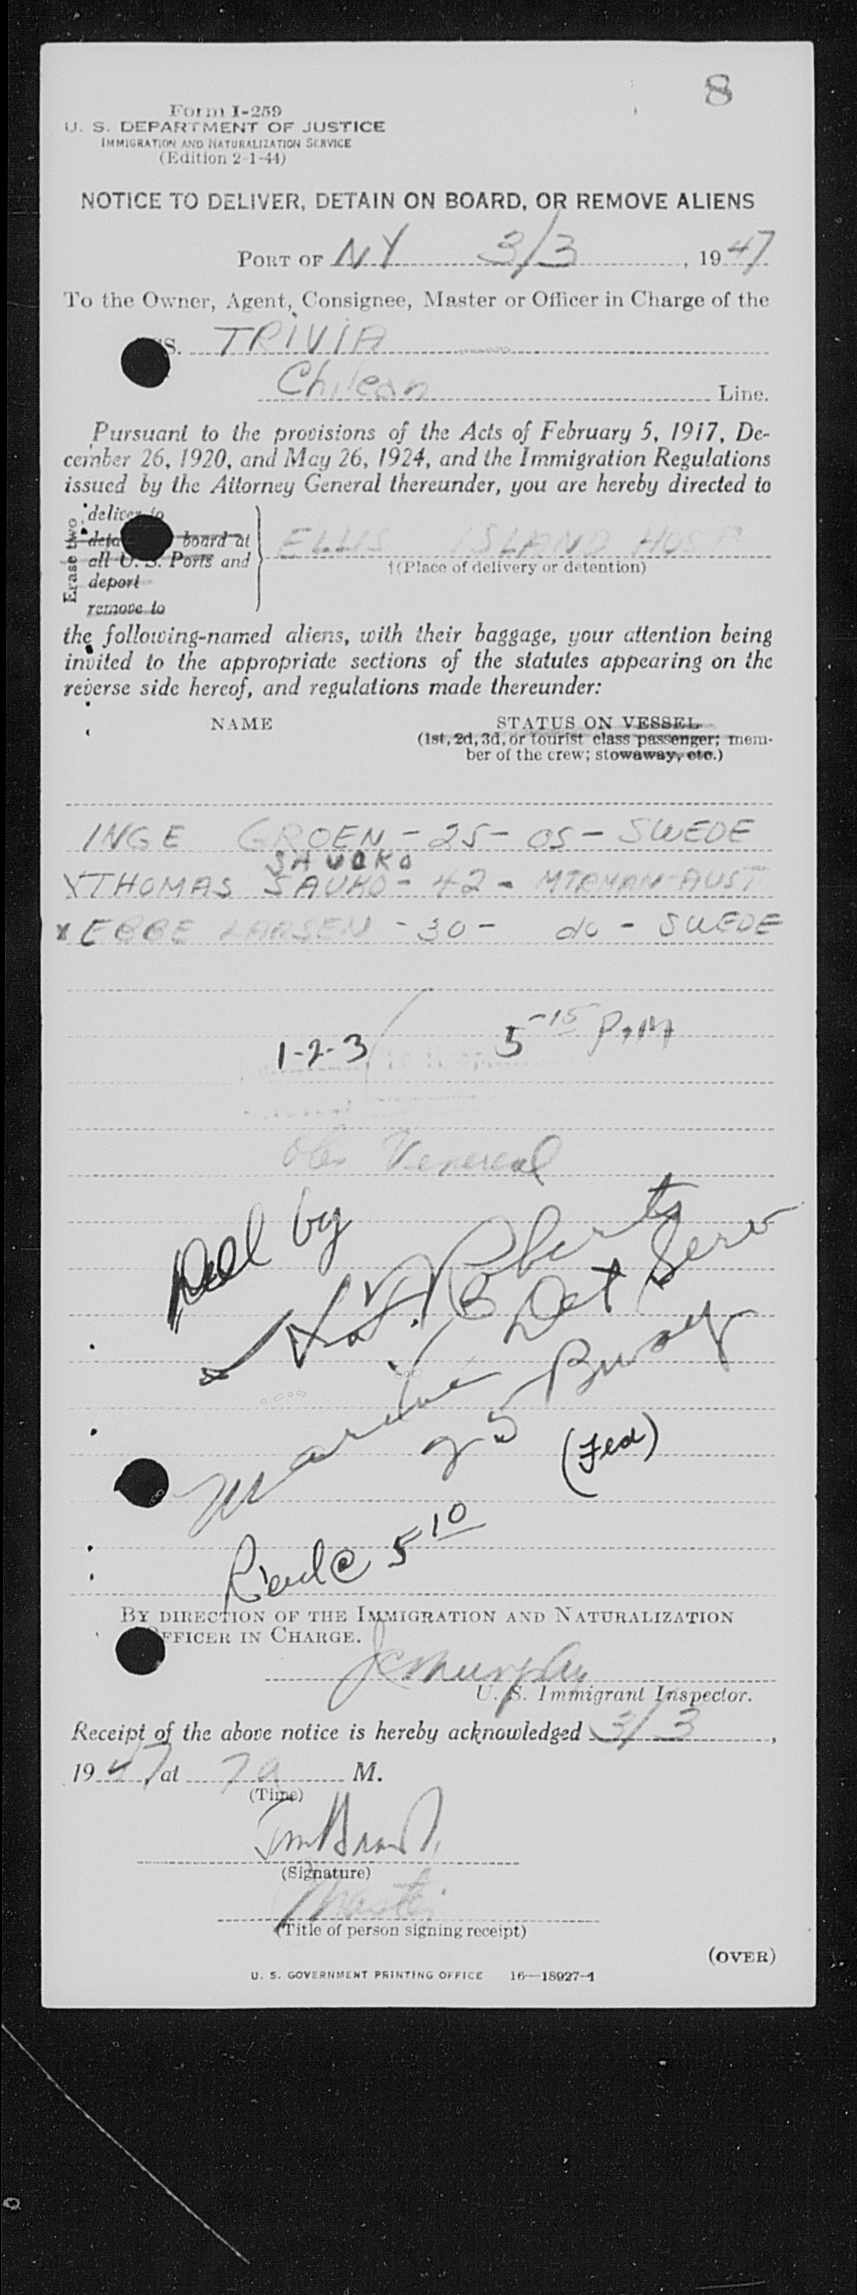 8
Form I-259
U. S. DEPARTMENT OF JUSTICE
IMMIGRATION AND NATURALIZATION SERVICE
(Edition 2-1-44)
NOTICE TO DELIVER, DETAIN ON BOARD, OR REMOVE ALIENS
PORT OF NY 3/3, 1947
To the Owner, Agent, Consignee, Master or Officer in Charge of the
S. TRIVIA
Chilean Line.
Pursuant to the provisions of the Acts of February 5, 1917, De-
cember 26, 1920, and May 26, 1924, and the Immigration Regulations
issued by the Attorney General thereunder, you are hereby directed to
Erase two
deliver to
board at
all U. S. Ports and
deport
remove to
ELLIS ISLAND HOSP
†(Place of delivery or detention)
the following-named aliens, with their baggage, your attention being
invited to the appropriate sections of the statutes appearing on the
reverse side hereof, and regulations made thereunder:
NAME STATUS ON VESSEL
(1st, 2d, 3d, or tourist class passenger; mem-
ber of the crew; stowaway, etc.)
INGE GROEN - 25 - OS - SWEDE
SAUOKO
X THOMAS SAUKO - 42 - MTRMAN - AUST
X EBBE LARSEN - 30 - do - SWEDE
1-2-3 5-15 P.M
Venereal
Del by
Roberts
Det Serv
Marine
Busey
(Fed)
5 10
BY DIRECTION OF THE IMMIGRATION AND NATURALIZATION
OFFICER IN CHARGE.
JC Murphy
U. S. Immigrant Inspector.
Receipt of the above notice is hereby acknowledged 3/3,
1947, at 7a M.
(Time)
(Signature)
Master
(Title of person signing receipt)
(OVER)
U. S. GOVERNMENT PRINTING OFFICE 16—18927-1